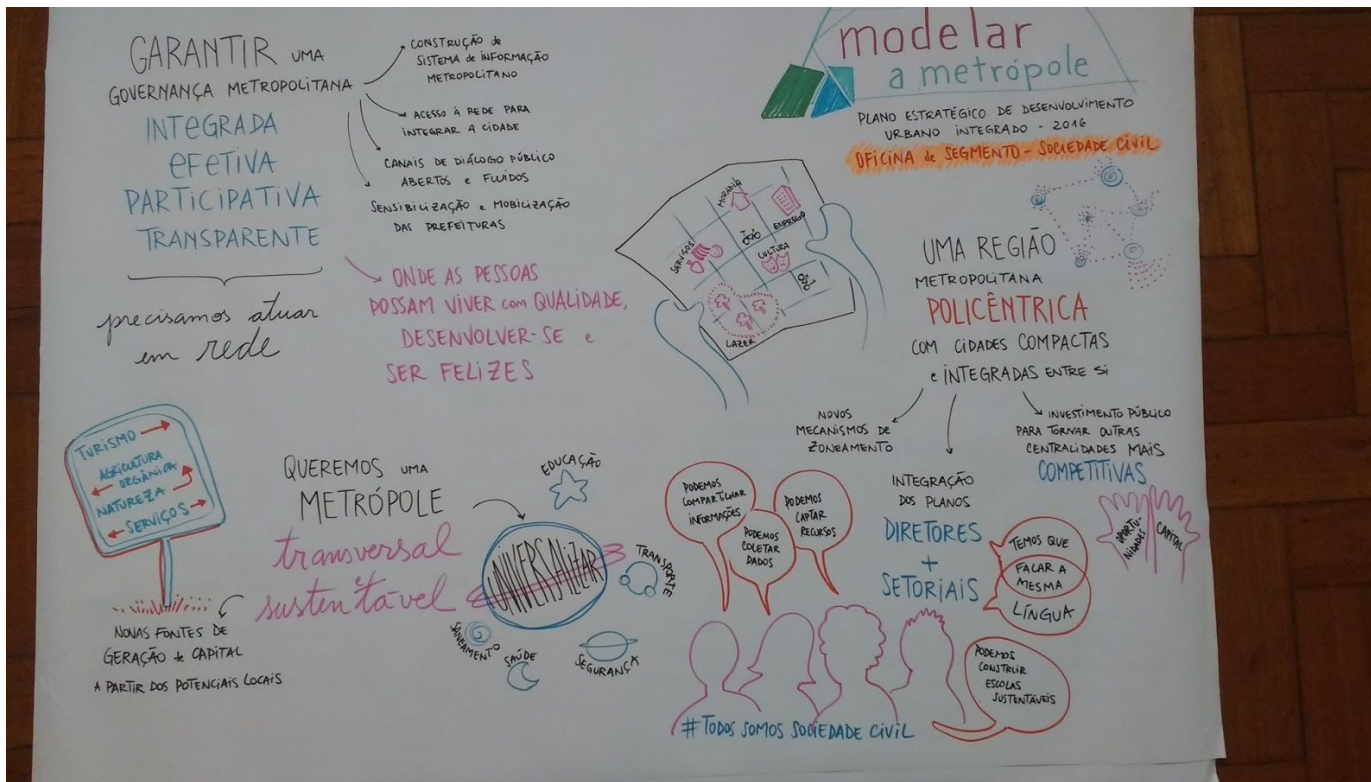 GARANTIR UMA
GOVERNANÇA METROPOLITANA
INTEGRADA
EFETIVA
PARTICIPATIVA
TRANSPARENTE
precisamos atuar
em rede
CONSTRUÇÃO de
SISTEMA de INFORMAÇÃO
METROPOLITANO
ACESSO À REDE PARA
INTEGRAR A CIDADE
CANAIS DE DIÁLOGO PÚBLICO
ABERTOS e FLUÍDOS
SENSIBILIZAÇÃO e MOBILIZAÇÃO
DAS PREFEITURAS
ONDE AS PESSOAS
POSSAM VIVER com QUALIDADE,
DESENVOLVER-SE e
SER FELIZES
modelar
a metrópole
PLANO ESTRATÉGICO DE DESENVOLVIMENTO
URBANO INTEGRADO - 2016
OFICINA de SEGMENTO - SOCIEDADE CIVIL
MORADIA
EMPREGO
SERVIÇOS
CULTURA
LAZER
UMA REGIÃO
METROPOLITANA
POLICÊNTRICA
COM CIDADES COMPACTAS
e INTEGRADAS ENTRE SI
NOVOS
MECANISMOS DE
ZONEAMENTO
INTEGRAÇÃO
DOS PLANOS
DIRETORES
+
SETORIAIS
INVESTIMENTO PÚBLICO
PARA TORNAR OUTRAS
CENTRALIDADES MAIS
COMPETITIVAS
OPORTU-
NIDADES
CAPITAL
TURISMO
AGRICULTURA
ORGÂNICA
NATUREZA
SERVIÇOS
NOVAS FONTES DE
GERAÇÃO de CAPITAL
A PARTIR DOS POTENCIAIS LOCAIS
QUEREMOS UMA
METRÓPOLE
transversal
sustentável
UNIVERSALIZAR
EDUCAÇÃO
TRANSPORTE
SEGURANÇA
SAÚDE
SANEAMENTO
PODEMOS
COMPARTILHAR
INFORMAÇÕES
PODEMOS
COLETAR
DADOS
PODEMOS
CAPTAR
RECURSOS
TEMOS QUE
FALAR A
MESMA
LÍNGUA
PODEMOS
CONSTRUIR
ESCOLAS
SUSTENTÁVEIS
#TODOS SOMOS SOCIEDADE CIVIL